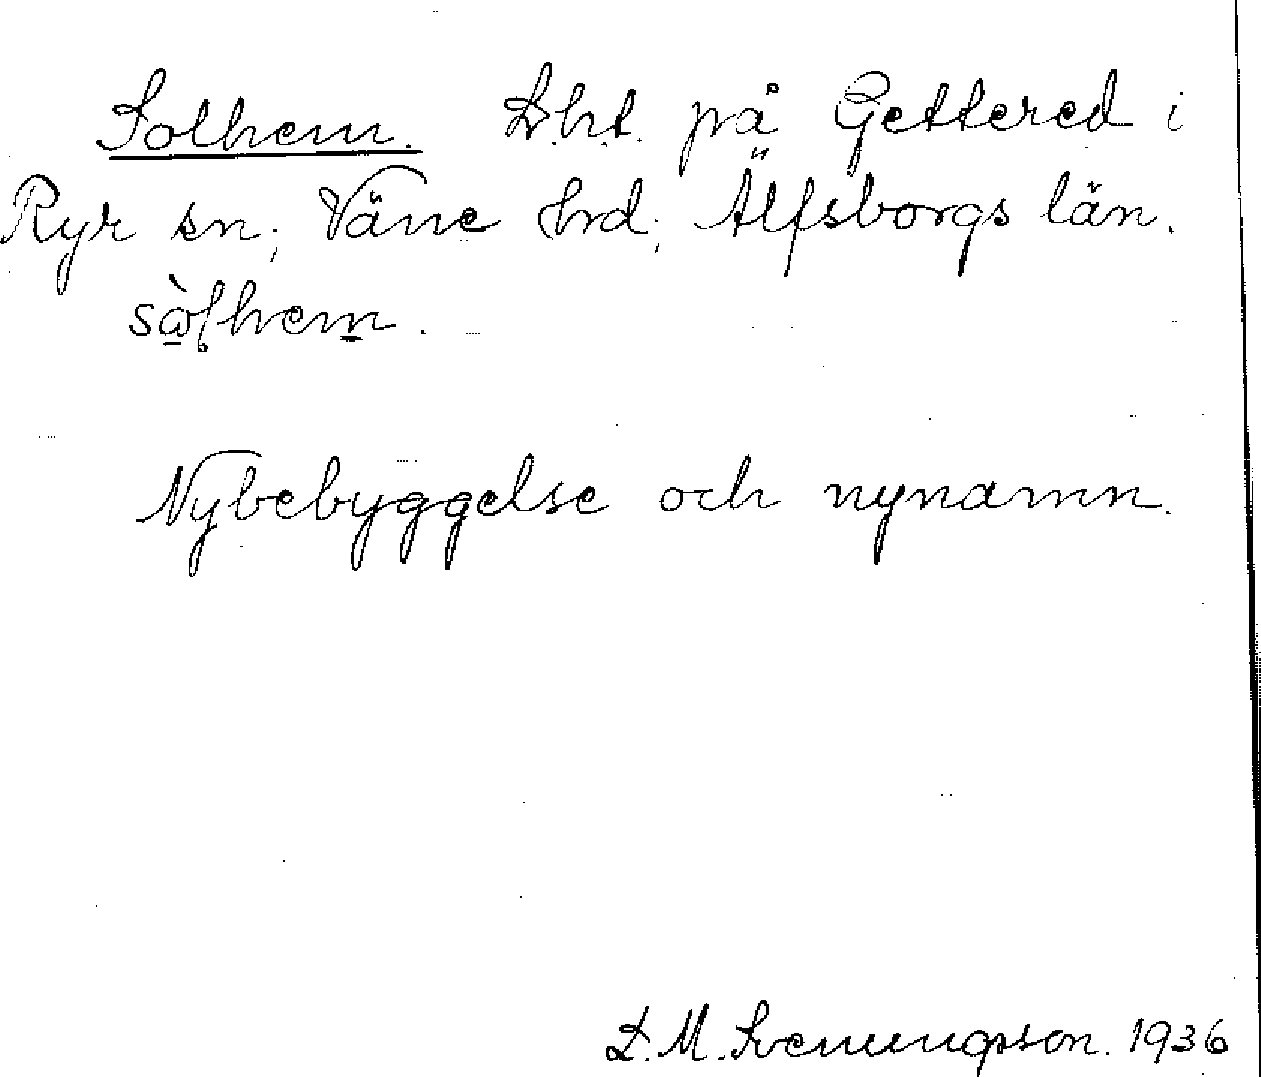 Solhem. Lht. på Gettered i
Ryr sn; Väne hrd; Älfsborgs län.
sòlhem.
Nybebyggelse och nynamn.
D. M. Svenungsson. 1936